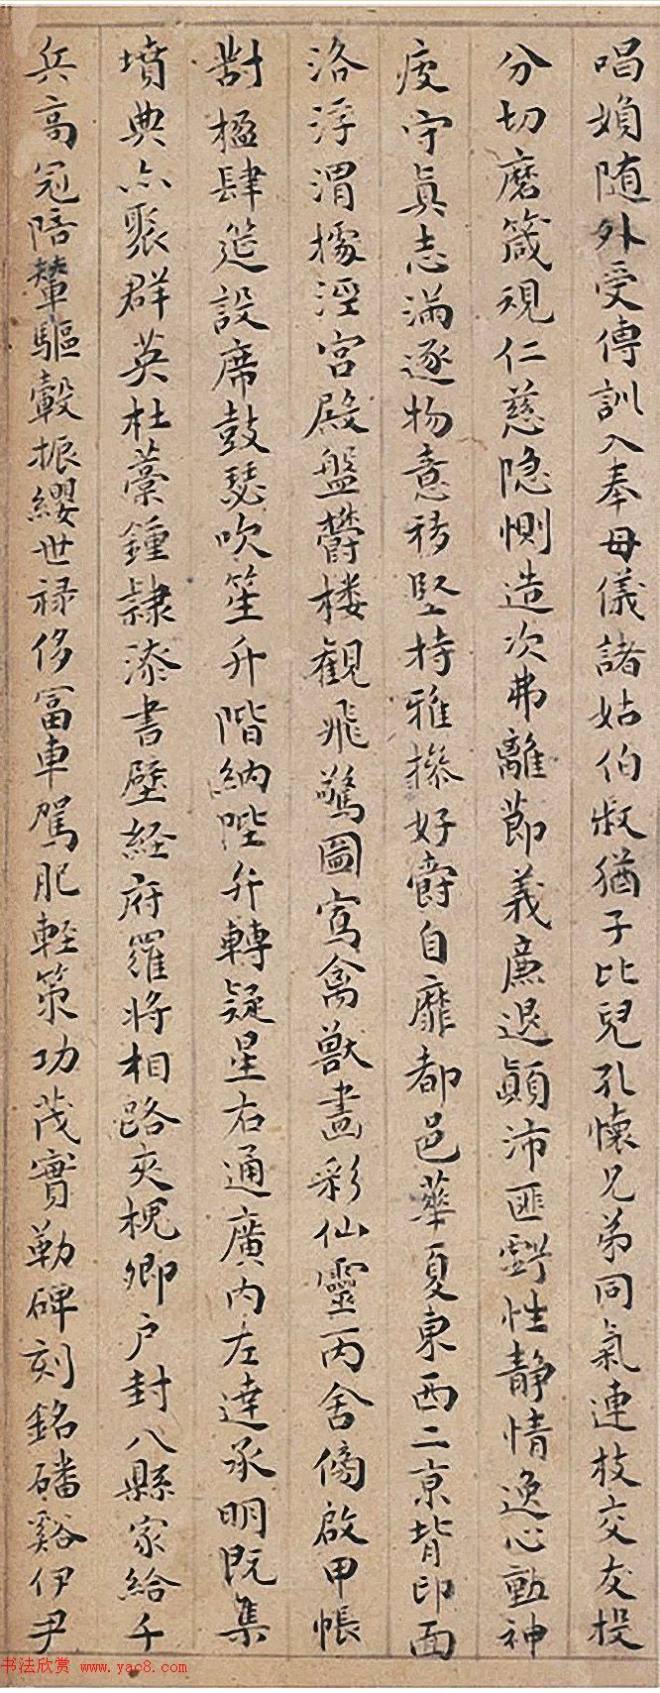 唱媍随外受傅訓入奉母儀諸姑伯叔猶子比兒孔懷兄弟同氣連枝交友投
分切磨箴規仁慈隐惻造次弗離莭義廉退顛沛匪虧性静情逸心動神
疲守真志満逐物意移堅持雅操好爵自靡都邑華夏東西二京背邙面
洛浮渭據涇宮殿盤欝楼觀飛驚圖寫禽獸畫彩仙靈丙舍傍啟甲帳
對楹肆筵設席鼓瑟吹笙升階納陛弁轉疑星右通廣内左達承明既集
墳典亦聚群英杜藁鍾隸漆書壁経府羅將相路夾槐卿户封八縣家給千
兵高冠陪輦驅轂振纓世禄侈冨車駕肥軽策功茂實勒碑刻銘磻谿伊尹
书法欣赏 www.yac8.com